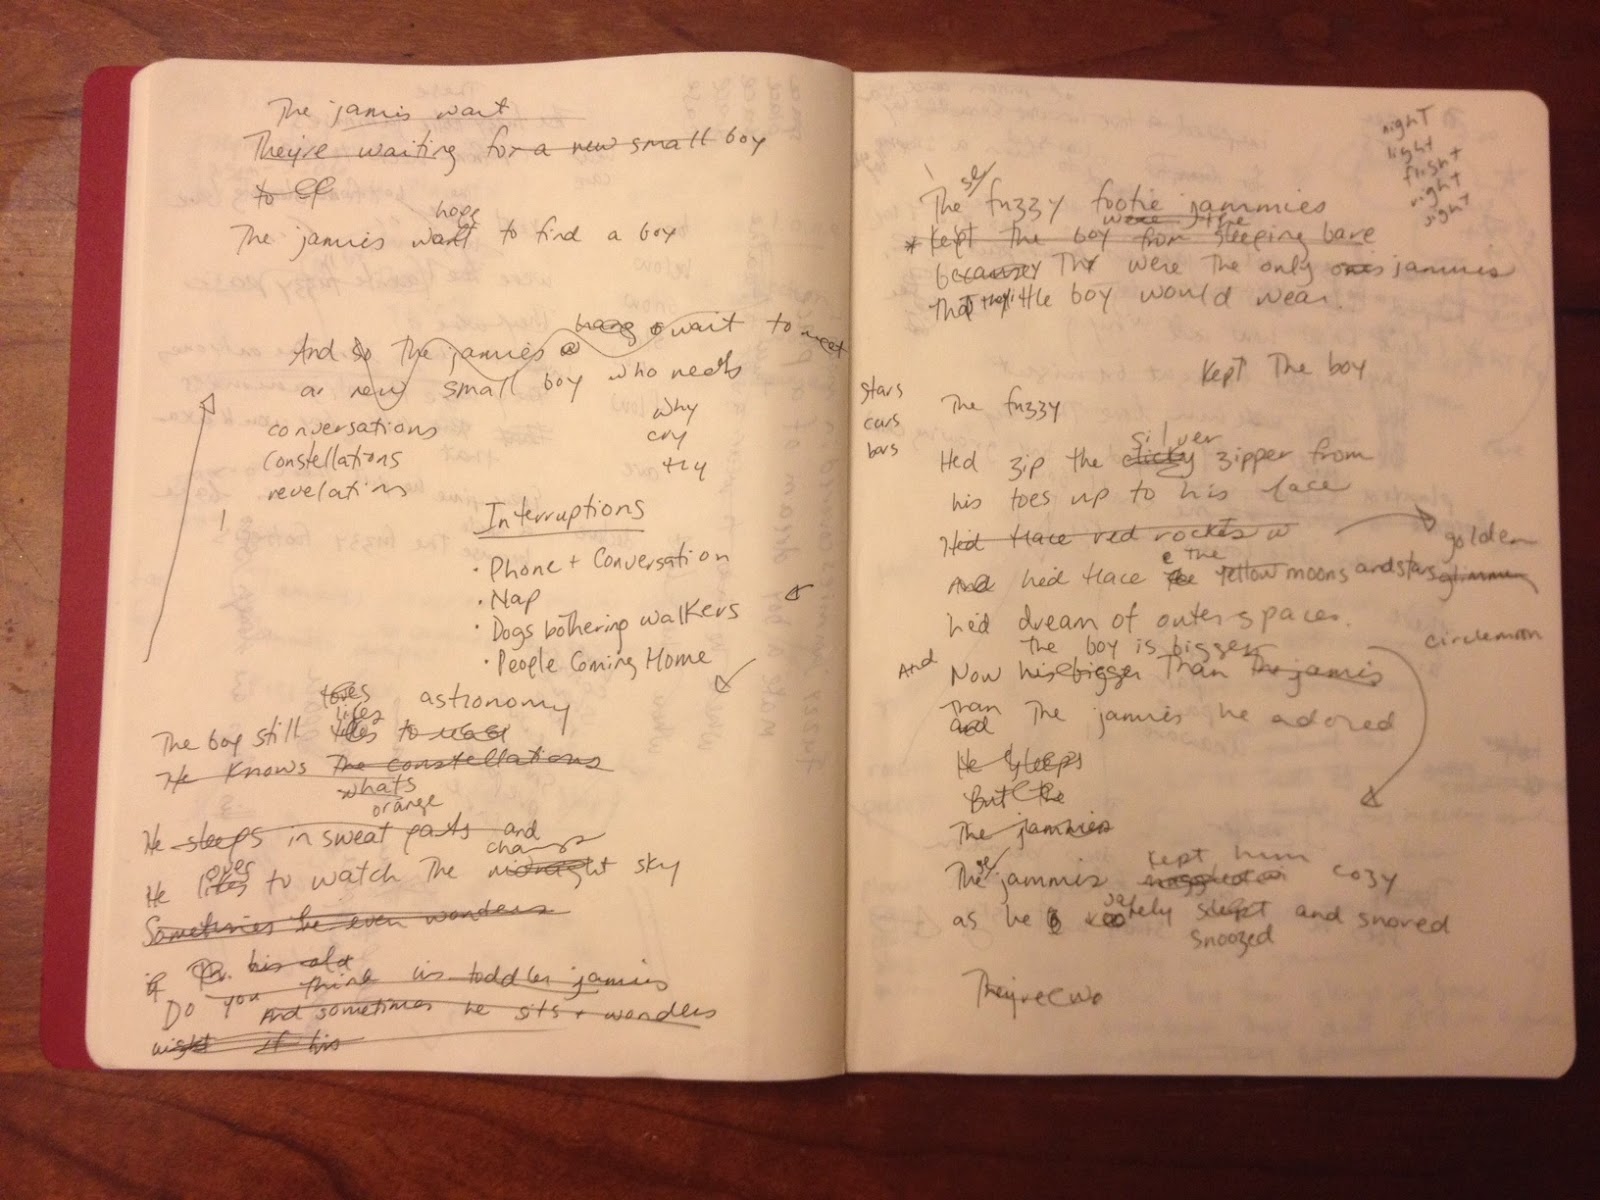 The jamis wait
They're waiting for a new small boy
to
hope
The jamies want to find a boy
hang + wait to meet
And so the jammies
a new small boy who needs
why
cry
try
conversations
constellations
revelations
!
Interruptions
• Phone + Conversation
• Nap
• Dogs bothering walkers
• People Coming Home
loves
likes
astronomy
The boy still likes to
He knows The constellations
whats
orange
He sleeps in sweat pants and
over
He likes to watch the midnight sky
Sometimes he even wonders
if his old
Do you think his toddler jamies
And sometimes he sits + wonders
might if his
night
light
flight
right
sight
The fuzzy footie jammies
were the
* Kept the boy from sleeping bare
because They were the only jammies
That the little boy would wear.
Kept The boy
stars
cars
bars
The fuzzy
silver
He'd zip the zipper from
his toes up to his face
He'd trace red rockets w
golden
the
And he'd trace yellow moons and stars glimmer
he'd dream of outer spaces.
circle moon
The boy is bigger
And
Now his bigger Than The jamis
Than
and The jammies he adored
He sleeps
But the
The jammies
kept him
The jammies cozy
as he safely slept and snored
snoozed
They're